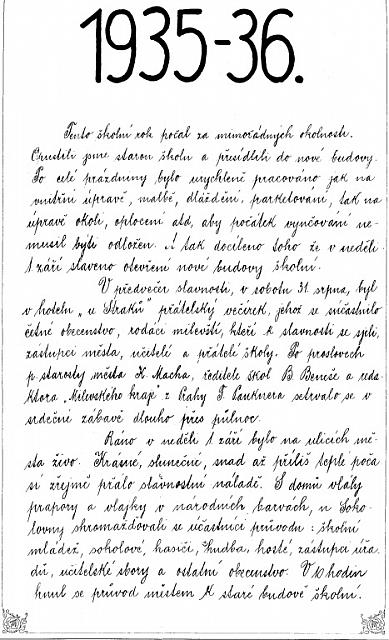 1935-36.
Tento školní rok počal za mimořádných okolností.
Opustili jsme starou školu a přesídlili do nové budovy.
Po celé prázdniny bylo urychleně pracováno jak na
vnitřní úpravě, malbě, dláždění, parketování, tak na
úpravě okolí, oplocení atd, aby počátek vyučování ne-
musil býti odložen. A tak docíleno toho že v neděli
1 září slaveno otevření nové budovy školní.
V předvečer slavnosti, v sobotu 31. srpna, byl
v hotelu „u Straků" přátelský večírek, jehož se súčastnilo
četné obecenstvo, rodáci milevští, kteří k slavnosti se sjeli,
zástupci města, učitelé a přátelé školy. Po proslovech
p. starosty města K. Macha, ředitele škol B. Beneše a reda-
ktora „Milevského kraje" z Prahy F. Lauknera setrvalo se v
srdečné zábavě dlouho přes půlnoc.
Ráno v neděli 1 září bylo na ulicích mě-
sta živo. Krásné, slunečné, snad až příliš teplé poča-
sí zřejmě přálo slavnostní náladě. S domů vlály
prapory a vlajky v národních barvách, u Soko-
lovny shromažďovali se účastníci průvodu: školní
mládež, sokolové, hasiči, hudba, hosté, zástupci úřa-
dů, učitelské sbory a ostatní obecenstvo. V 10 hodin
hnul se průvod městem k staré budově školní.